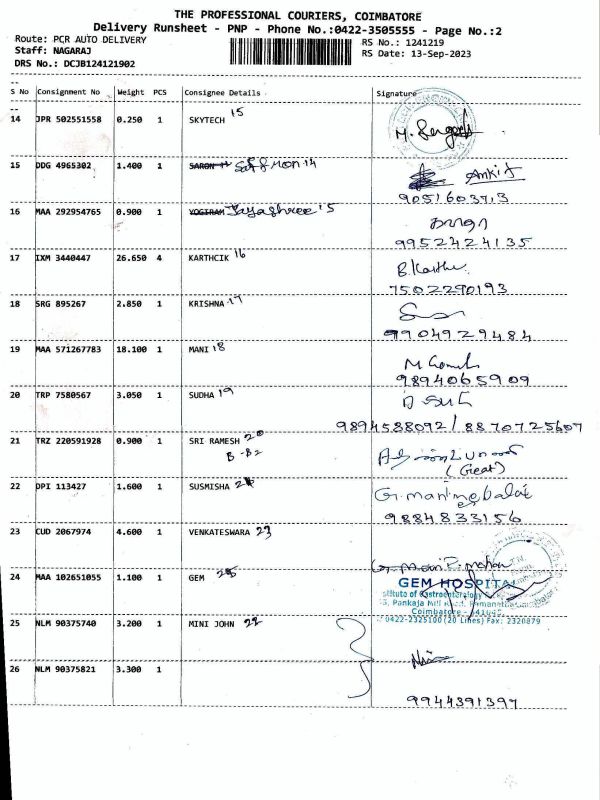 THE PROFESSIONAL COURIERS, COIMBATORE
Delivery Runsheet - PNP - Phone No.:0422-3505555 - Page No.:2
Route: PCR AUTO DELIVERY
RS No.: 1241219
Staff: NAGARAJ
RS Date: 13-Sep-2023
DRS No.: DCJB124121902
S No Consignment No Weight PCS Consignee Details Signature
14 JPR 502551558 0.250 1 SKYTECH 15
15 DDG 4965302 1.400 1 Mon 14 Ankit
16 MAA 292954765 0.900 1 Jayashree 15
9952424135
17 IXM 3440447 26.650 4 KARTHCIK 16 B.Karthi
7502290193
18 SRG 895267 2.850 1 KRISHNA 17
9904929484
19 MAA 571267783 18.100 1 MANI 18
9894065909
20 TRP 7580567 3.050 1 SUDHA 19
9894588092 / 8870725607
21 TRZ 220591928 0.900 1 SRI RAMESH 20
(Great)
22 DPI 113427 1.600 1 SUSMISHA
9884833156
23 CUD 2067974 4.600 1 VENKATESWARA 23
24 MAA 102651055 1.100 1 GEM 25 GEM HOSPITAL
25 NLM 90375740 3.200 1 MINI JOHN 22
0422-2325100 (20 Lines) Fax: 2320879
26 NLM 90375821 3.300 1
9944391397